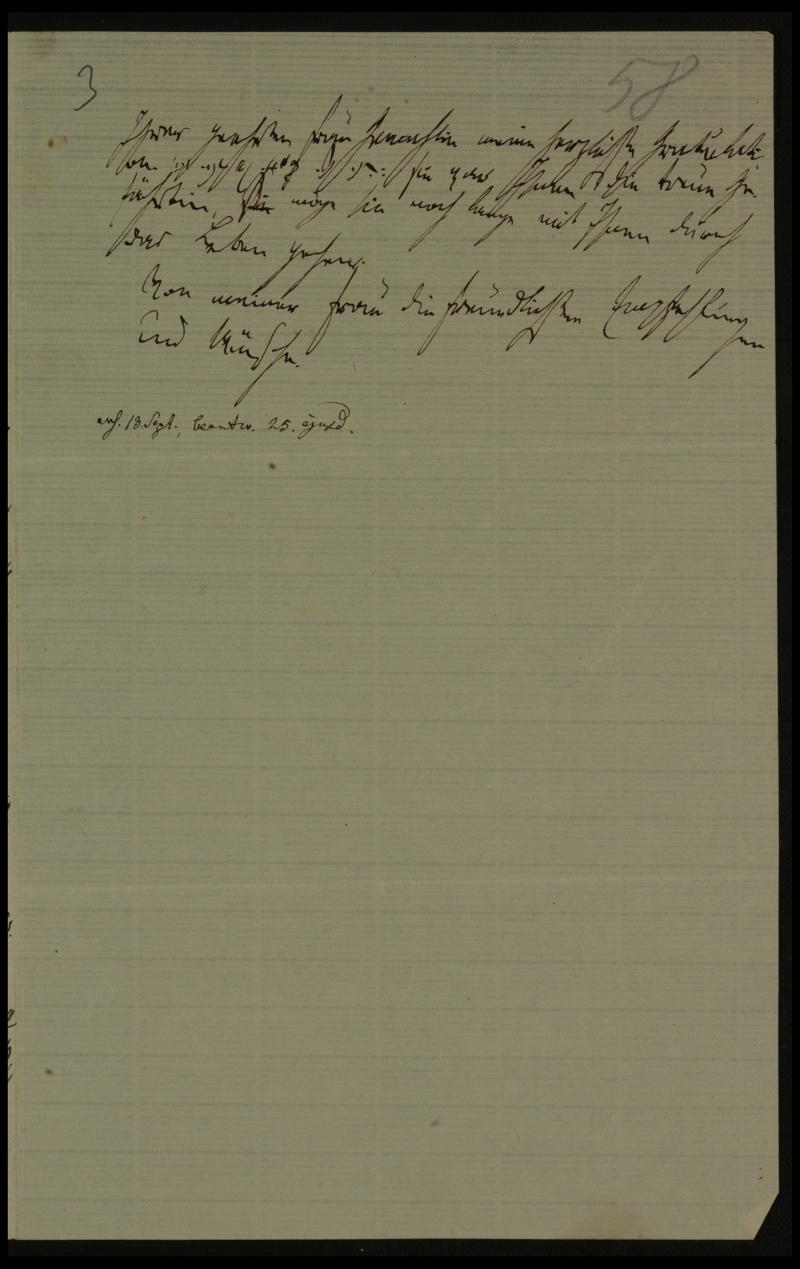 3
58
Ihrer geehrten Frau Gemahlin meine herzlichste Gratulati-
on. sie war Ihnen die treue Ge-
fährtin, möge sie noch lange mit Ihnen durch
das Leben gehen.
Von meiner Frau die freundlichsten Empfehlungen
und Wünsche.
erh. 13. Sept., beantw. 25. ejusd.